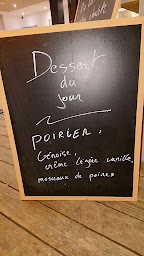 Dessert
du
jour
POIRIER :
Génoise,
crème légère vanille,
morceaux de poires